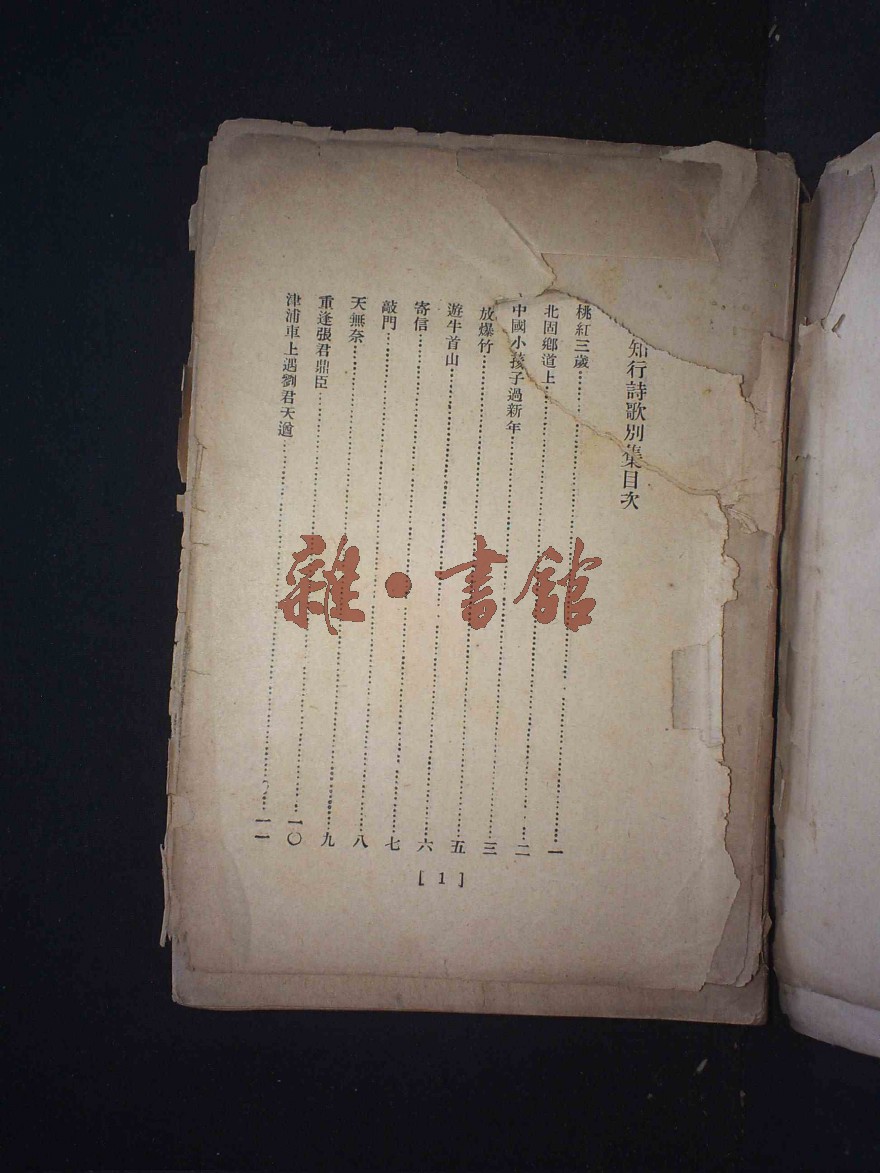 知行詩歌別集目次
桃紅三歲……一
北固鄉道上……二
中國小孩子過新年……三
放爆竹……五
遊牛首山……六
寄信……七
敲門……八
天無奈……九
重逢張君鼎臣……一〇
津浦車上遇劉君天……一一
[ 1 ]
雜·書館